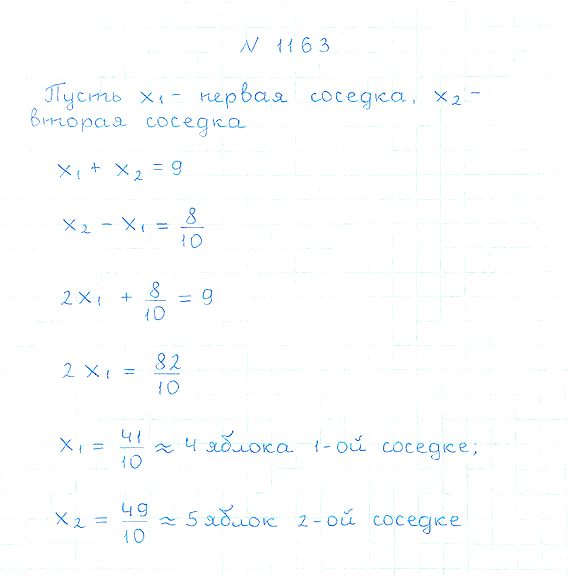 N 1163
Пусть x₁ - первая соседка, x₂ -
вторая соседка
x₁ + x₂ = 9
x₂ - x₁ = 8/10
2x₁ + 8/10 = 9
2x₁ = 82/10
x₁ = 41/10 ≈ 4 яблока 1-ой соседке;
x₂ = 49/10 ≈ 5 яблок 2-ой соседке